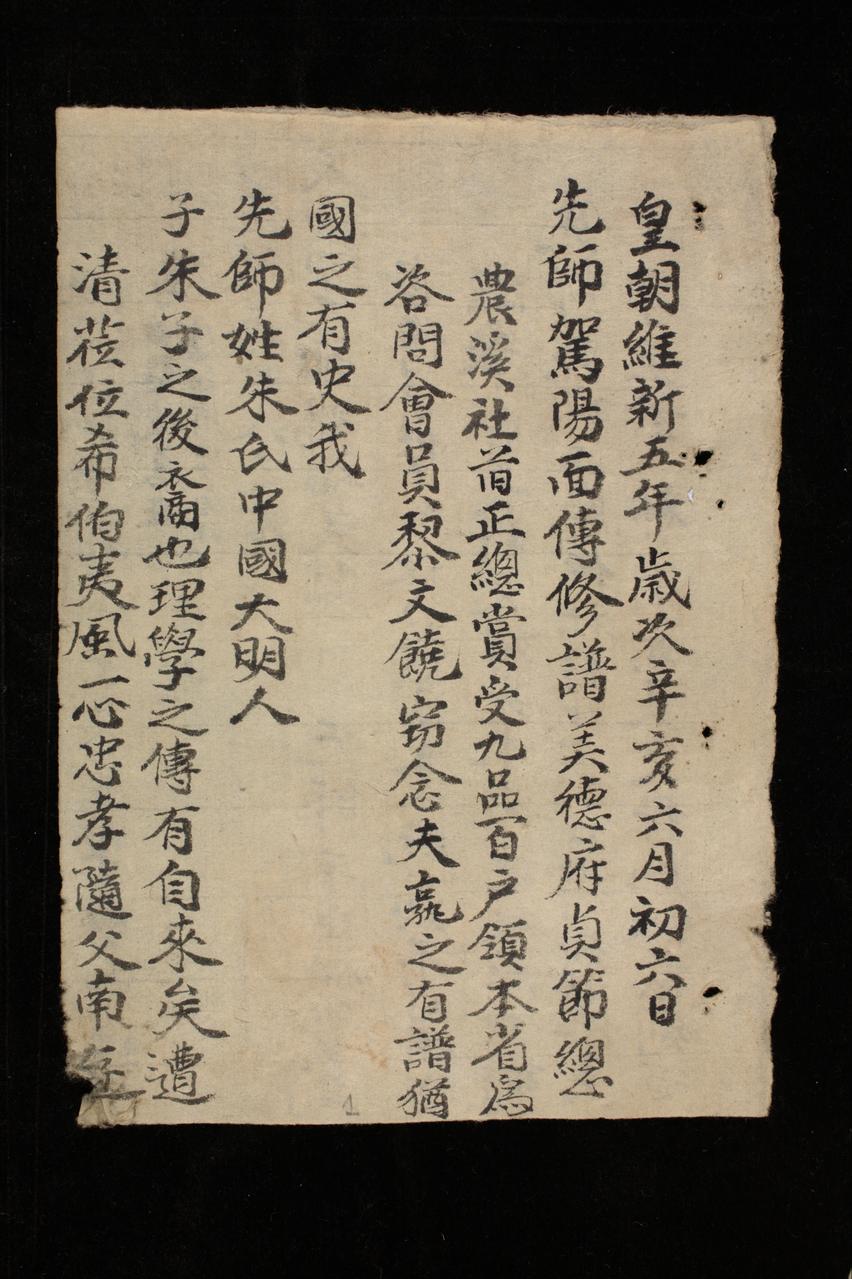 皇朝維新五年歲次辛亥六月初六日
先師駕陽面傳修譜美德府貞節總
農溪社首正總賞受九品百戶領本省為
咨問會員黎文饒窃念夫家之有譜猶
國之有史我
先師姓朱氏中國大明人
子朱子之後裔也理學之傳有自來矣遭
清莅位希伯夷風一心忠孝隨父南
1